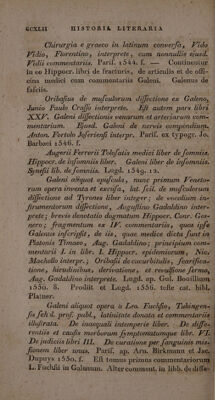 CCXLII HISTORIA LITERARIA
Chirurgia e graeco in latinum conversa, Vido
Vidio, Florentino, interprete, cum nonnullis ejusd.
Vidii commentariis. Paris. 1544. f. — Continentur
in eo Hippocr. libri de fracturis, de articulis et de offi-
cina medici cum commentariis Galeni. Galenus de
fasciis.
Oribasius de musculorum dissectione ex Galeno,
Junio Paulo Crasso interprete. Est autem pars libri
XXV. Galeni dissectionis venarum et arteriarum com-
mentarium. Ejusd. Galeni de nervis compendium,
Anton. Fortolo Joseriensi interpr. Paris. ex typogr. Jo.
Barbaei 1546. f.
Augerii Ferrerii Tolosatis medici liber de somniis.
Hippocr. de insomniis liber. Galeni liber de insomniis.
Synesii lib. de somniis. Lugd. 1549. 12.
Galeni aliquot opuscula, nunc primum Veneto-
rum opera inventa et excusa, lat. scil. de musculorum
dissectione ad Tyrones liber integer; de vocalium in-
strumentorum dissectione, Augustino Gadaldino inter-
prete; brevis denotatio dogmatum Hippocr. Conr. Ges-
nero; fragmentum ex IV. commentariis, quos ipse
Galenus inscripsit, de iis, quae medice dicta sunt in
Platonis Timaeo, Aug. Gadaldino; principium com-
mentarii I. in libr. I. Hippocr. epidemiorum, Nic.
Machello interpr.; Oribasii de cucurbitulis, scarifica-
tione, hirudinibus, derivatione, et revulsione ferme,
Aug. Gadaldino interprete. Lugd. ap. Guil. Rouillium
1550. 8. Prodiit et Lugd. 1556. teste cat. bibl.
Platner.
Galeni aliquot opera a Leo. Fuchsio, Tubingen-
sis schol. prof. publ., latinitate donata et commentariis
illustrata. De inaequali intemperie liber. De diffe-
rentiis et causis morborum symptomatumque libr. VI.
De judiciis libri III. De curatione per sanguinis mis-
sionem liber unus. Paris. ap. Arn. Birkmann et Jac.
Dupuys 1550. f. Est tomus primus commentariorum
L. Fuchsii in Galenum. Alter commentt. in libb. de diffe-